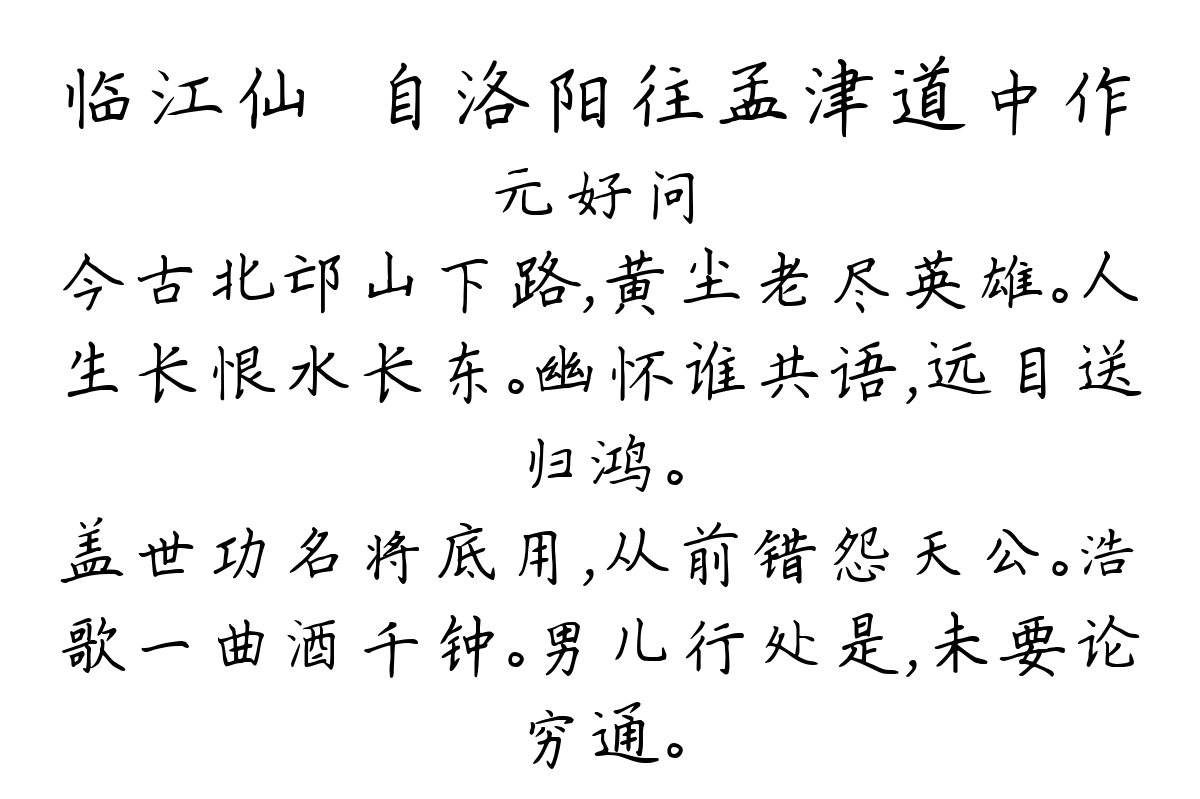 临江仙 自洛阳往孟津道中作
元好问
今古北邙山下路,黄尘老尽英雄。人
生长恨水长东。幽怀谁共语,远目送
归鸿。
盖世功名将底用,从前错怨天公。浩
歌一曲酒千钟。男儿行处是,未要论
穷通。